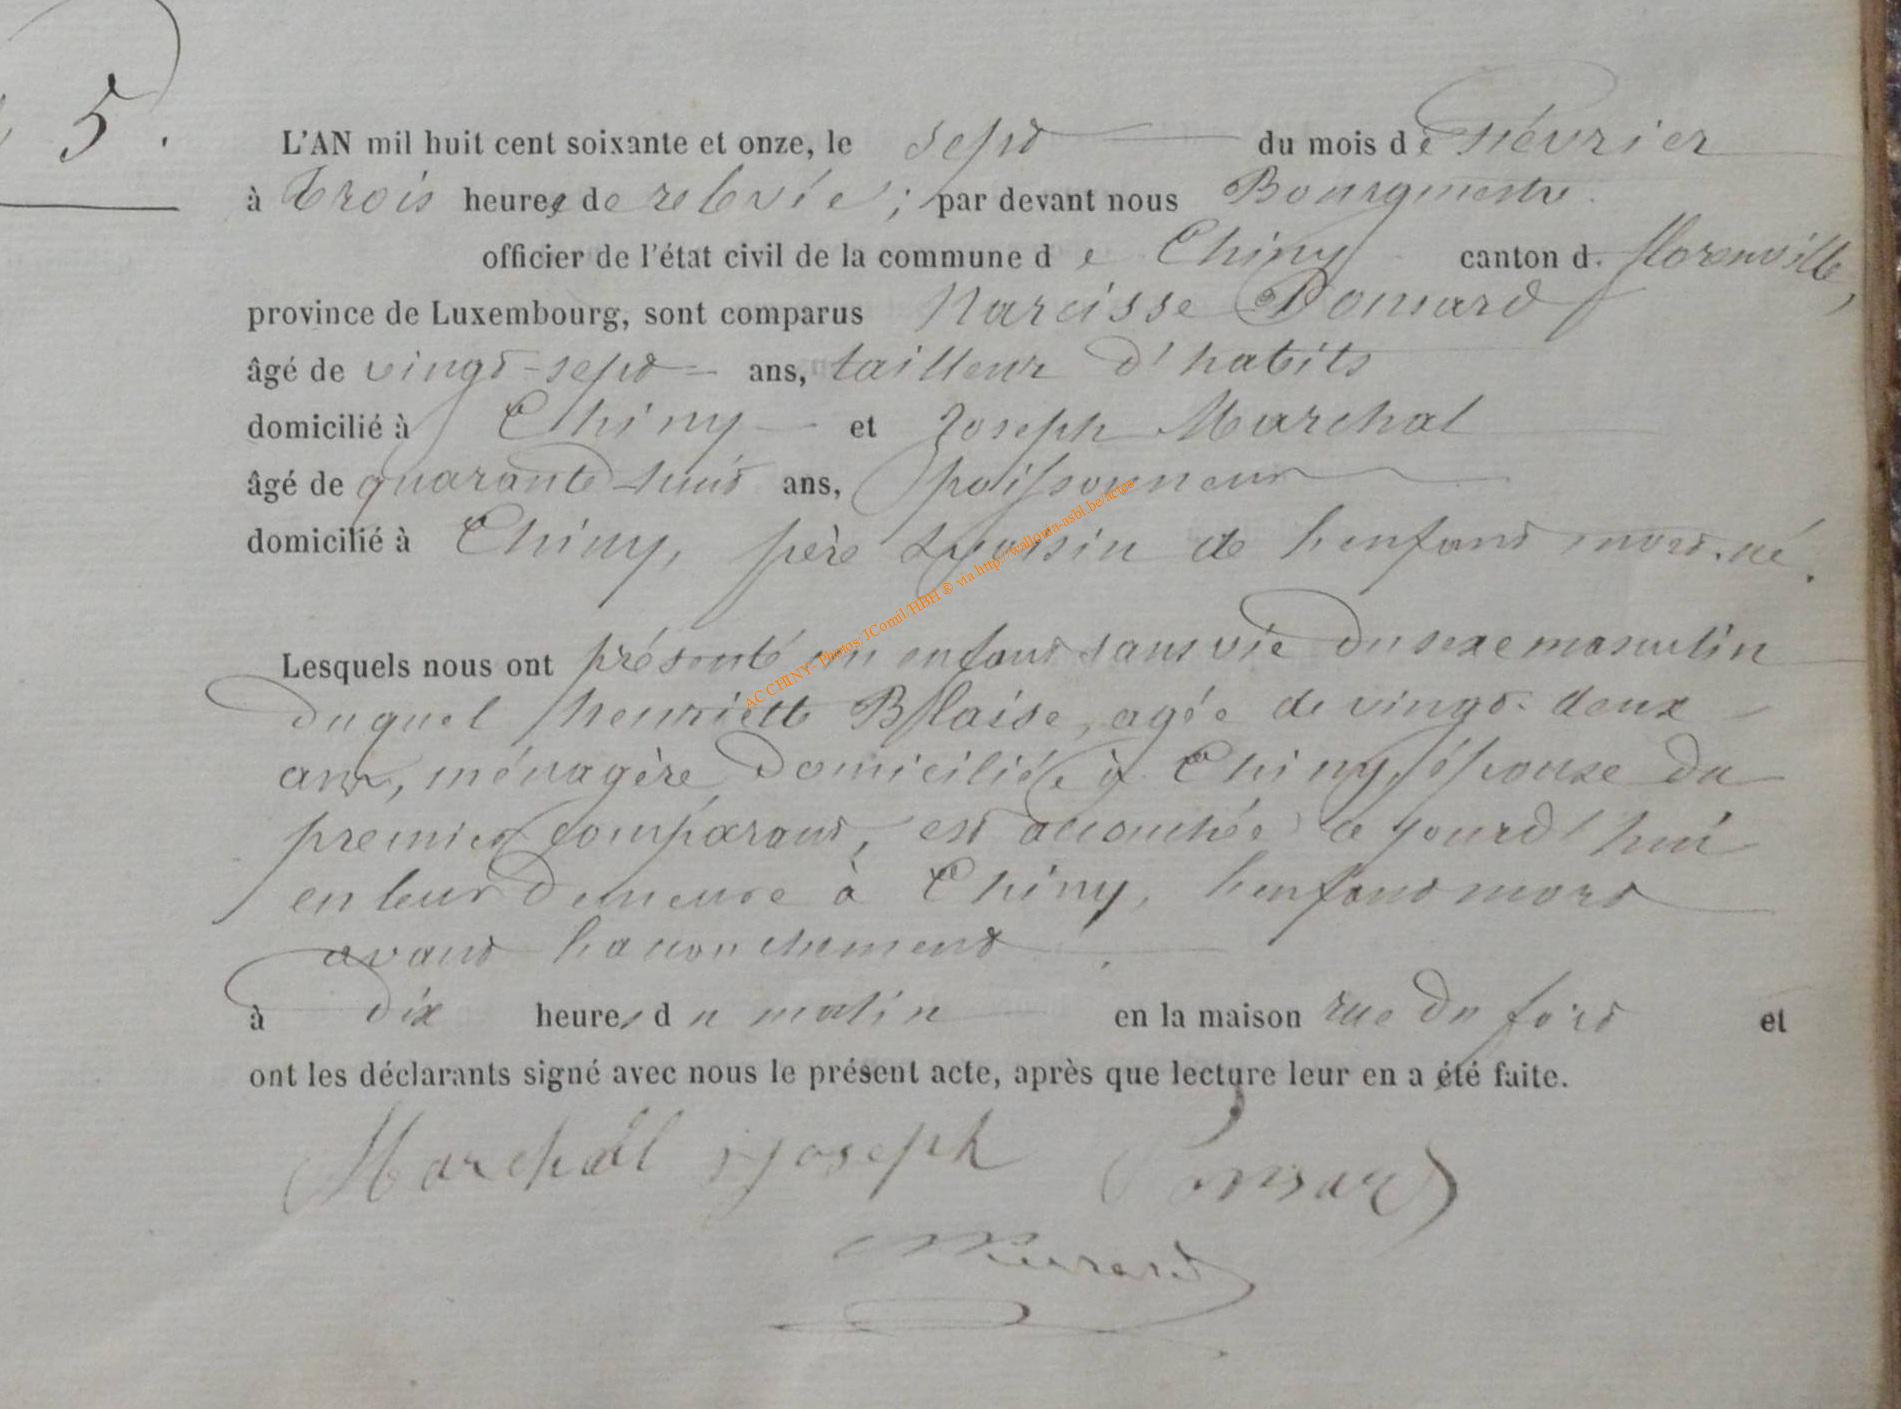 5.
L'AN mil huit cent soixante et onze, le sept du mois de février
à trois heures de relevée; par devant nous Bourgmestre
officier de l'état civil de la commune de Chiny canton d. florenville,
province de Luxembourg, sont comparus Narcisse Ponsard
âgé de vingt-sept ans, tailleur d'habits
domicilié à Chiny et Joseph Marchal
âgé de quarante-huit ans, poissonneur
domicilié à Chiny, père de l'enfant mort-né.
Lesquels nous ont présenté un enfant sans vie du sexe masculin
duquel henriette Blaise, agée de vingt-deux
ans, ménagère domiciliée à Chiny, épouse du
premier comparant, est accouchée ce jourd'hui
en leur demeure à Chiny, l'enfant mort
avant l'accouchement.
à dix heures du matin en la maison rue du fort et
ont les déclarants signé avec nous le présent acte, après que lecture leur en a été faite.
Marchal Joseph Ponsard
AC CHINY- Photos JComil/HBH ® via http://wallonia-asbl.be/actes